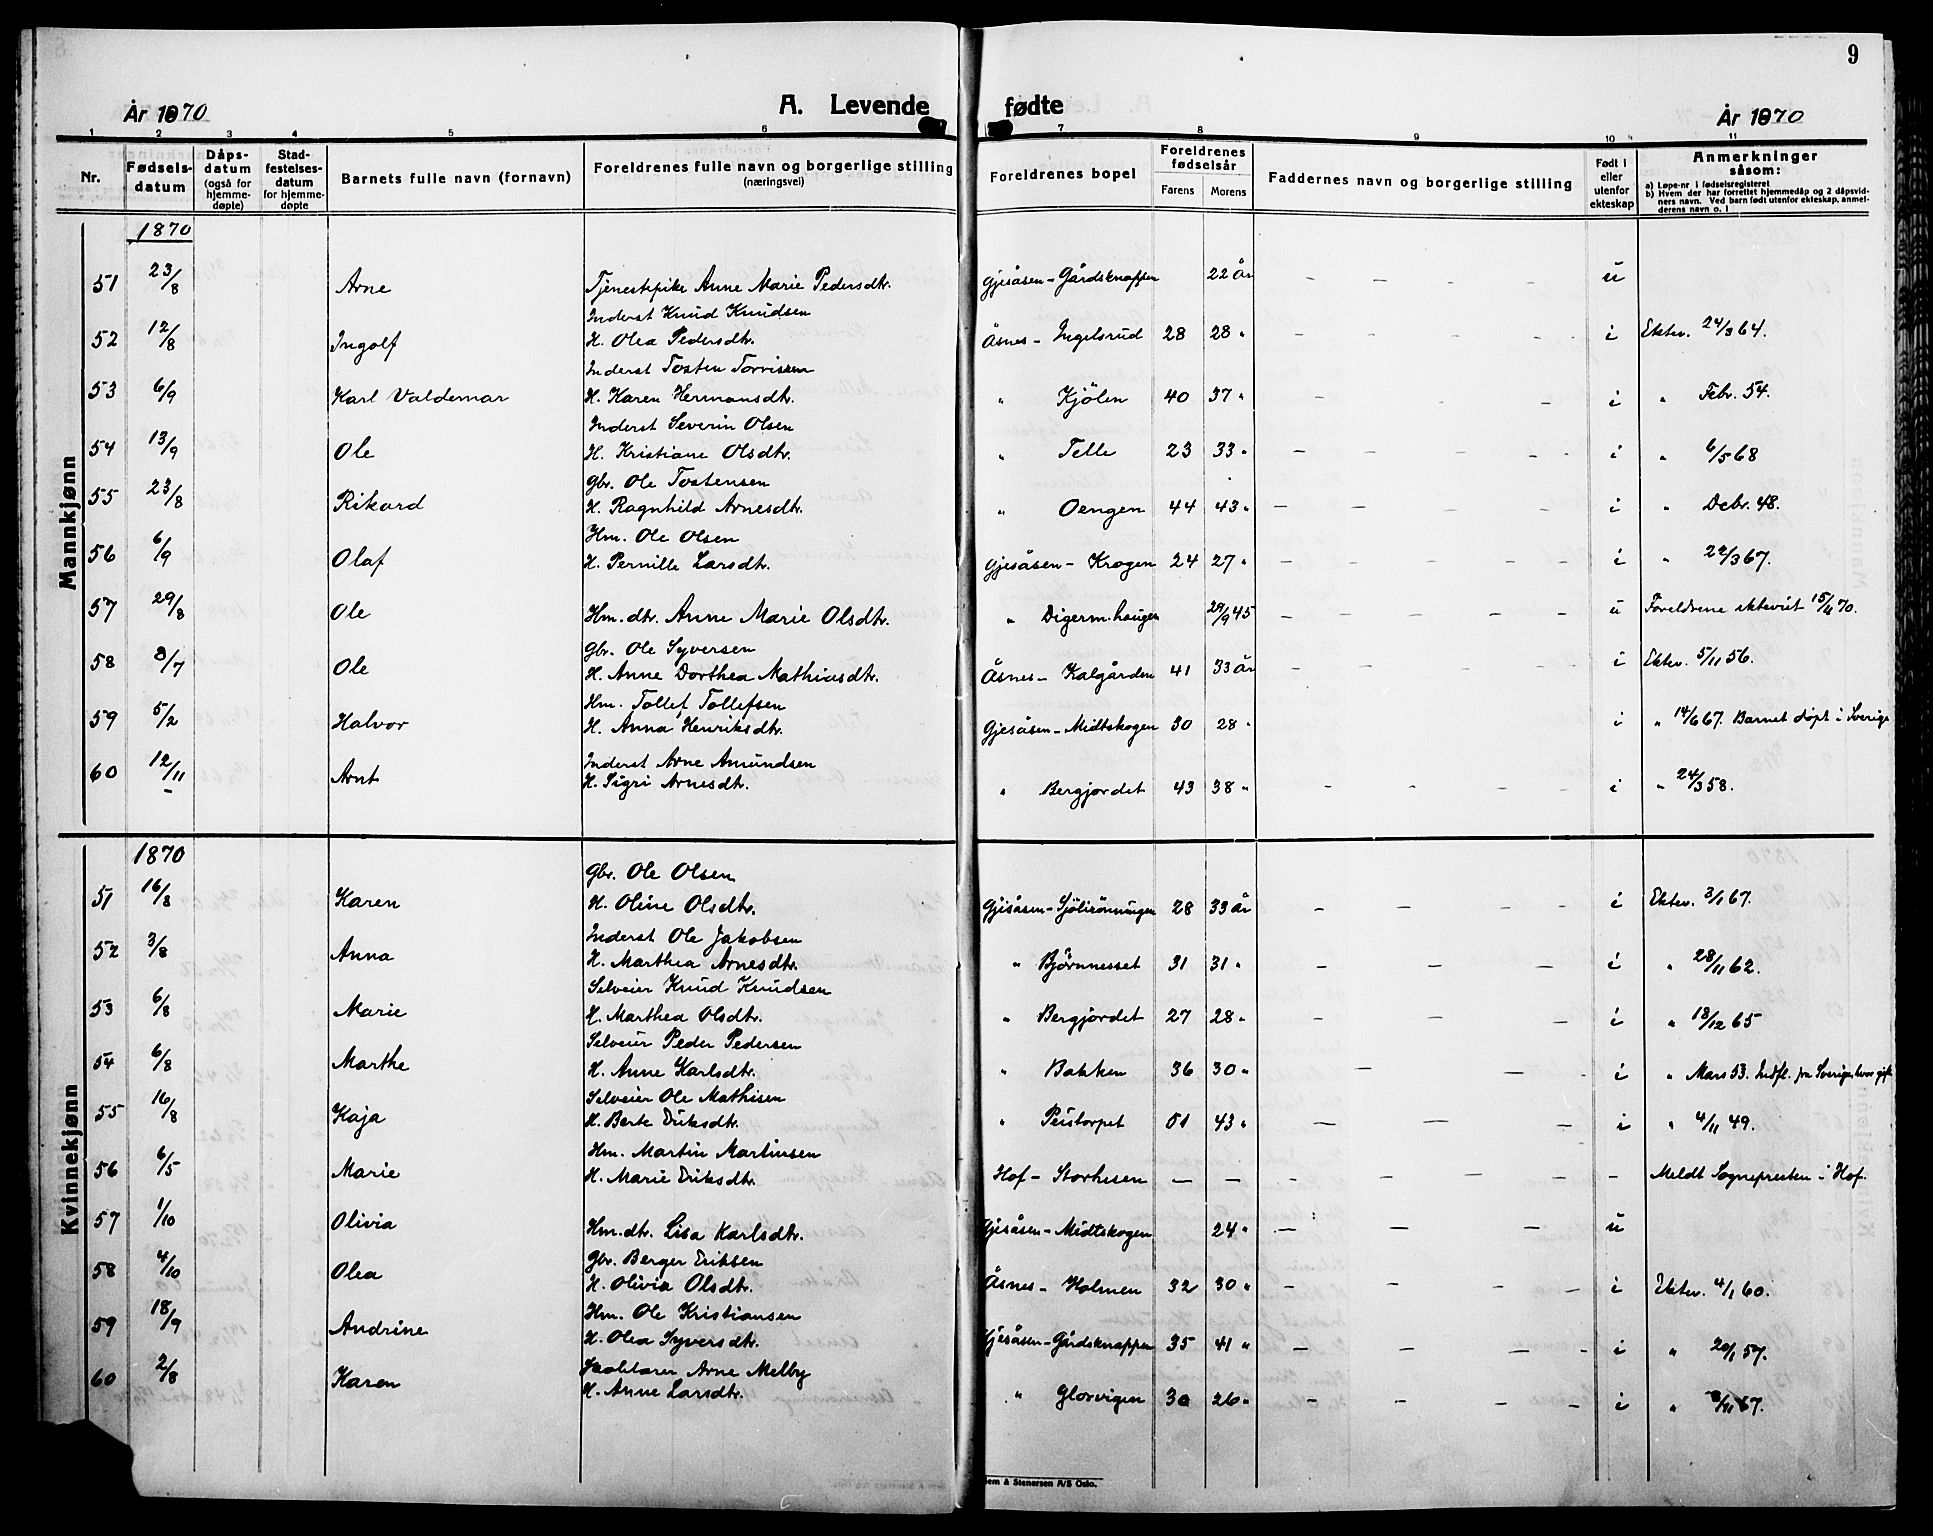 9
År 1870
A. Levende fødte
År 1870
1 2 3 4 5 6 7 8 9 10 11
Nr. | Fødsels-datum | Dåps-datum (også for hjemme-døpte) | Stad-festelses-datum for hjemme-døpte | Barnets fulle navn (fornavn) | Foreldrenes fulle navn og borgerlige stilling (næringsvei) | Foreldrenes bopel | Foreldrenes fødselsår Farens Morens | Faddernes navn og borgerlige stilling | Født i eller utenfor ekteskap | Anmerkninger såsom: a) Løpe-nr i fødselsregisteret b) Hvem der har forrettet hjemmedåp og 2 dåpsvidners navn. Ved barn født utenfor ekteskap, anmelderens navn o. l
Mannkjønn
1870
51 23/8 Arne Tjenestepike Anne Marie Pedersdtr. Gjesåsen - Gårdsknappen 22 år - - - - u
Inderst Knud Knudsen
52 12/8 Ingolf H. Olea Pedersdtr. Åsnes - Ingelsrud 28 28 " - - - - i Ektev. 24/3 64.
Inderst Tosten Torvissen
53 6/9 Karl Valdemar H. Karen Hermansdtr. " Kjölen 40 37 " - - - i " Febr. 54.
Inderst Severin Olsen
54 13/9 Ole H. Kristiane Olsdtr. " Telle 23 33 " - - - - i " 6/5 68
Gbr. Ole Tostensen
55 23/8 Rikard H. Ragnhild Arnesdtr. " Oengen 44 43 " - - - - i " Debr. 48.
Hm. Ole Olsen
56 6/9 Olaf H. Pernille Larsdtr. Gjesåsen - Krogen 24 27 " - - - - i " 22/3 67.
57 29/8 Ole Hm. dtr. Anne Marie Olsdtr. " Digerm.haugen 29/9 45 - - - - u Foreldrene ekteviet 15/11 70.
Gbr. Ole Syversen
58 8/7 Ole H. Anne Dorthea Mathiasdtr. Åsnes - Kalgården 41 33 år - - - - i Ektev. 5/11 56.
Hm. Tollef Tollefsen
59 5/2 Halvor H. Anna Henriksdtr. Gjesåsen - Midtskogen 30 28 " - - - - i " 14/6 67. Barnet döpt i Sverige
Inderst Arne Amundsen
60 12/11 Arnt H. Sigri Arnesdtr. " Bergjordet 43 38 " - - - - i " 24/3 58.
Kvinnekjønn
1870
Gbr. Ole Olsen
51 16/8 Karen H. Oline Olsdtr. Gjesåsen - Sjölirönningen 28 33 år - - - i Ektev. 3/1 67.
Inderst Ole Jakobsen
52 3/8 Anna H. Marthea Arnesdtr. " Björnneset 31 31 " - - - i " 28/11 62.
Selveier Knud Knudsen
53 6/8 Marie H. Marthea Olsdtr. " Bergjordet 27 28 " - - - i " 18/12 65
Selveier Peder Pedersen
54 6/8 Marthe H. Anne Karlsdtr. " Bakken 36 30 " - - - i " Mars 53. Indfl. fra Sverige, hvor gift
Selveier Ole Mathisen
55 16/8 Kaja H. Berte Eriksdtr. " Peistorpet 01 43 " - - - i " 4/11 49.
Hm. Martin Martinsen
56 6/5 Marie H. Marie Eriksdtr. Hof - Storhesen - - - - - - Meldt Sognepresten i Hof.
57 1/10 Olivia Hm.dtr. Lisa Karlsdtr. Gjesåsen - Midtskogen 24 " - - - u
Gbr. Berger Eriksen
58 4/10 Olea H. Olivia Olsdtr. Åsnes - Holmen 32 30 " - - - - i Ektev. 4/1 60.
Hm. Ole Kristiansen
59 18/9 Andrine H. Olea Syversdtr. Gjesåsen - Gårdsknappen 35 41 " - - - - i " 20/1 57.
Skolelærer Arne Melby
60 2/8 Karen H. Anne Larsdtr. " Glorvigen 30 26 " - - - - i " 8/11 67.
Sem & Stenersen A/S Oslo.